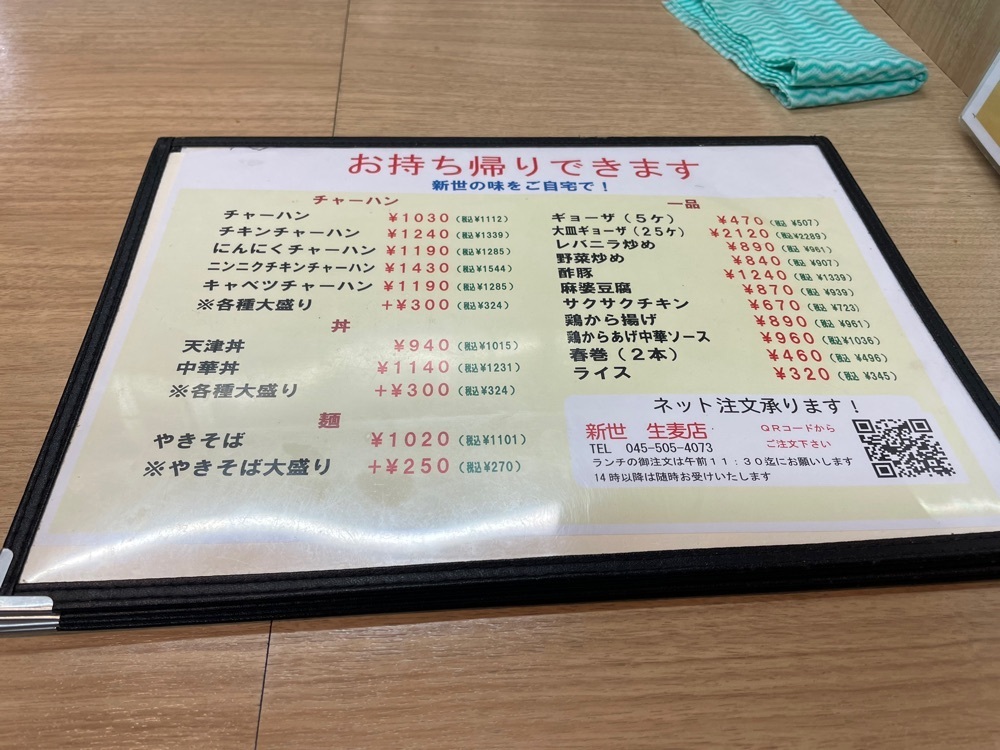 お持ち帰りできます
新世の味をご自宅で！
チャーハン
チャーハン ¥1030（税込¥1112）
チキンチャーハン ¥1240（税込¥1339）
にんにくチャーハン ¥1190（税込¥1285）
ニンニクチキンチャーハン ¥1430（税込¥1544）
キャベツチャーハン ¥1190（税込¥1285）
※各種大盛り +¥300（税込¥324）
丼
天津丼 ¥940（税込¥1015）
中華丼 ¥1140（税込¥1231）
※各種大盛り +¥300（税込¥324）
麺
やきそば ¥1020（税込¥1101）
※やきそば大盛り +¥250（税込¥270）
一品
ギョーザ（5ケ） ¥470（税込 ¥507）
大皿ギョーザ（25ケ） ¥2120（税込¥2289）
レバニラ炒め ¥890（税込 ¥961）
野菜炒め ¥840（税込 ¥907）
酢豚 ¥1240（税込¥1339）
麻婆豆腐 ¥870（税込 ¥939）
サクサクチキン ¥670（税込 ¥723）
鶏から揚げ ¥890（税込 ¥961）
鶏からあげ中華ソース ¥960（税込¥1036）
春巻（2本） ¥460（税込 ¥496）
ライス ¥320（税込 ¥345）
ネット注文承ります！
新世 生麦店
TEL 045-505-4073
QRコードから
ご注文下さい
ランチの御注文は午前11：30迄にお願いします
14時以降は随時お受けいたします